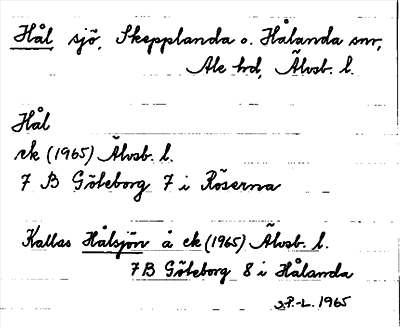 Hål sjö, Skepplanda o. Hålanda snr,
Ale hd, Älvsb. l.
Hål
ek (1965) Älvsb. l.
7 B Göteborg 7 i Röserna
Kallas Hålsjön å ek (1965) Älvsb. l.
7B Göteborg 8 i Hålanda
S.P.-L. 1965